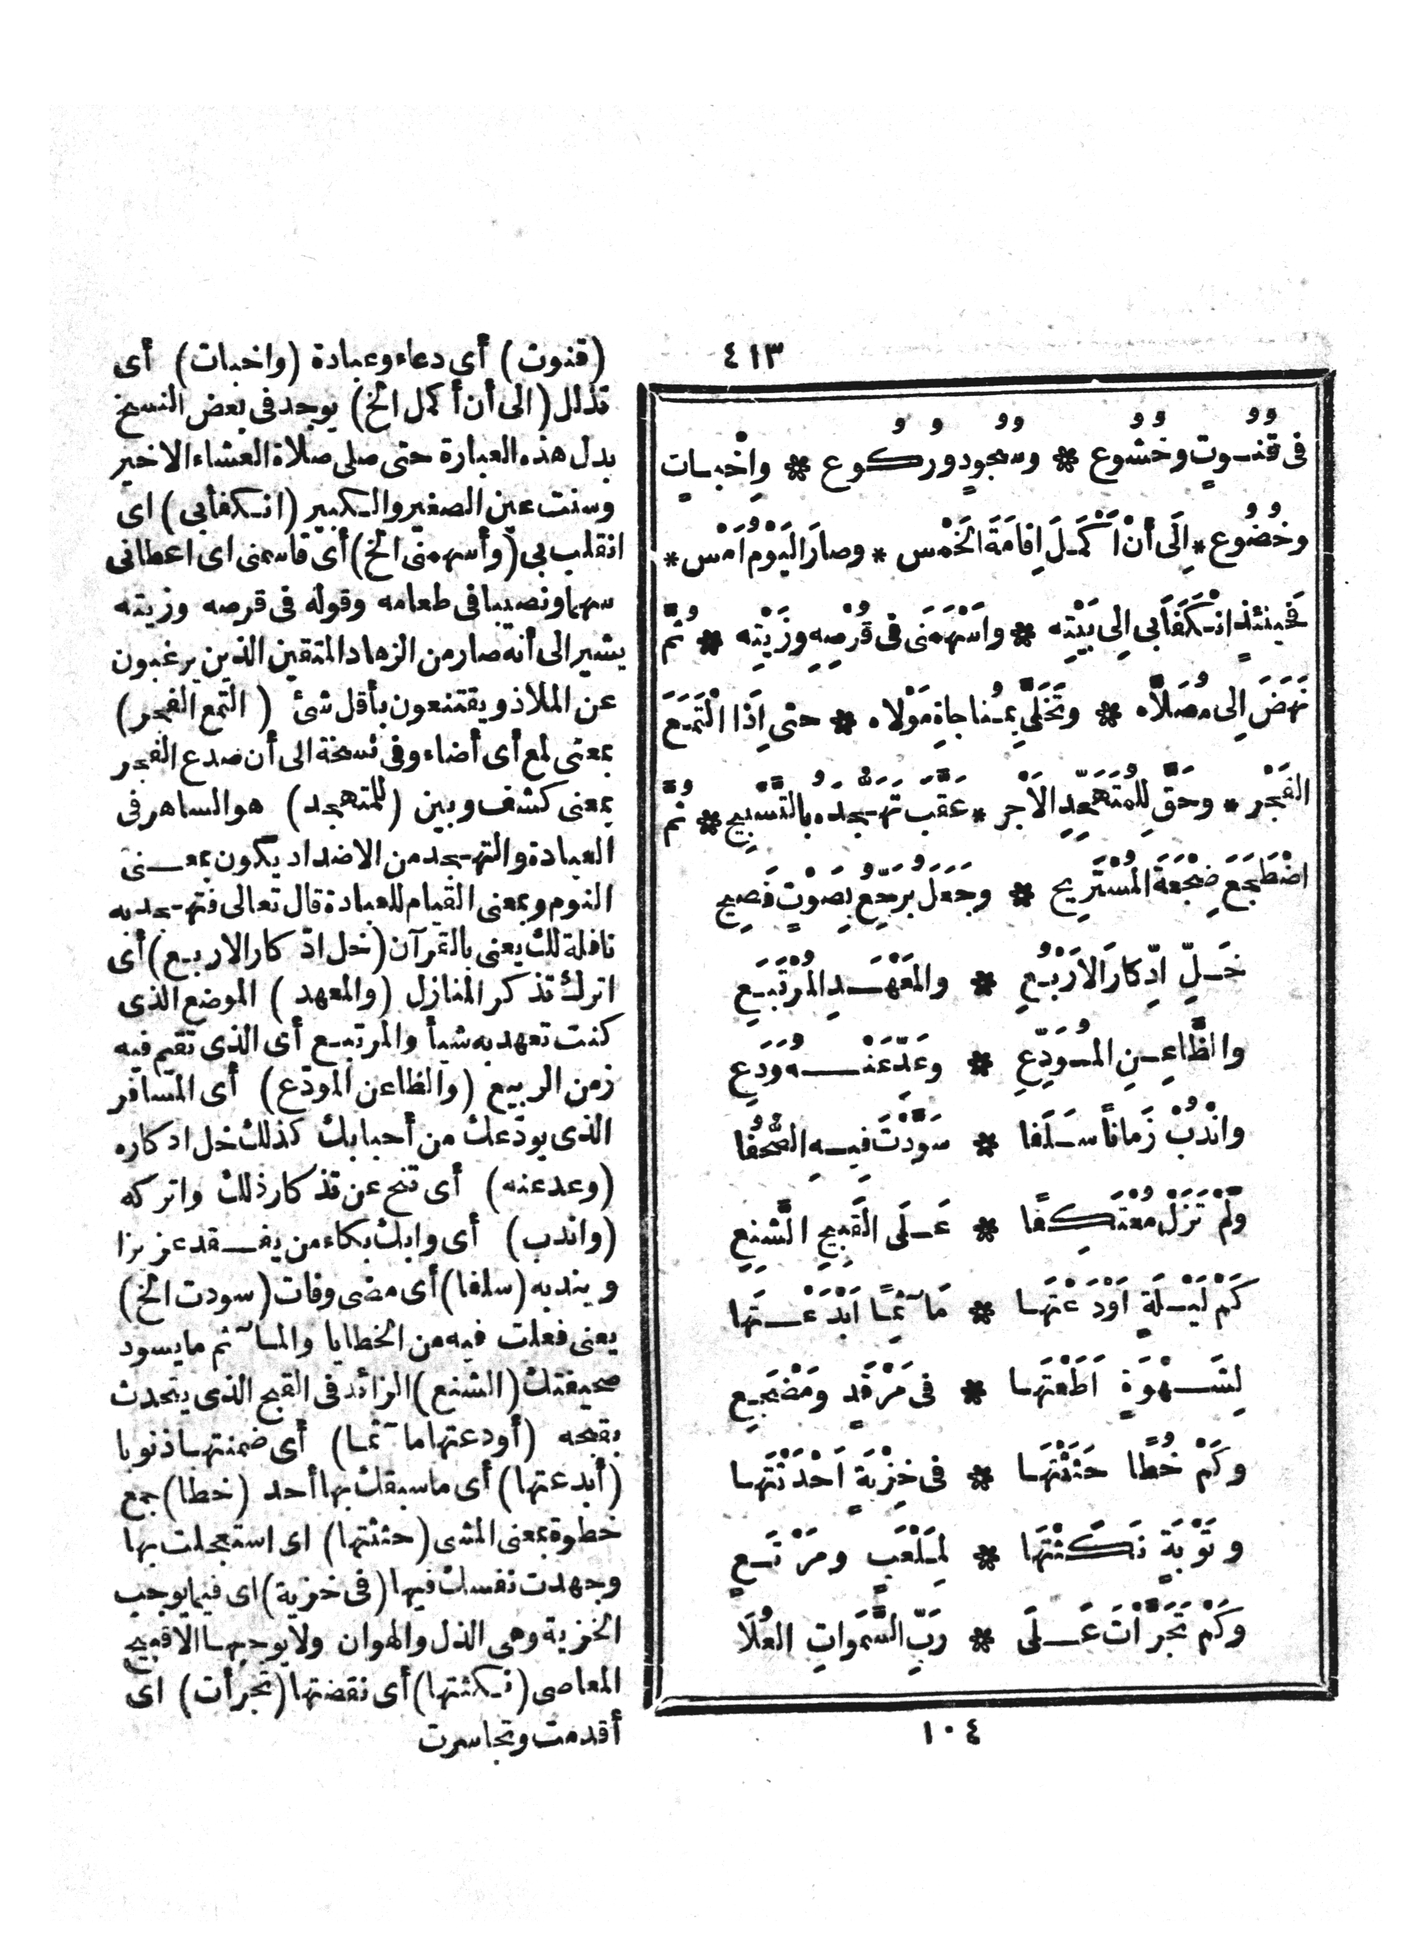 ٤١٣
فى قُنُوتٍ وخُشُوع * وسُجُودٍ ورُكُوع * وإِخْبـاتٍ
وخُضُوع * اِلَى أنْ اَكْمَلَ اِقامَةَ الخَمْس * وصارَ اليَوْمُ اَمْس *
فَحِينَئذٍ انْكَفَأ بى اِلى بَيْتِه * واَسْهَمَنى فى قُرْصِهِ وزَيْتِه * ثُمَّ
نَهَضَ اِلى مُصَلَّاه * وتَخَلَّى بِمُناجاةِ مَوْلاه * حتى اِذَا الْتَمَعَ
الفَجْر * وحَقَّ لِلمُتَهَجِّدِ الاَجْر * عَقَّبَ تَهَجُّدَه بالتَّسْبِيح * ثُمَّ
اضْطَجَعَ ضِجْعَةَ المُسْتَرِيح * وجَعَلَ يُرَجِّعُ بِصَوْتٍ فَصِيح
خَـلِّ ادِّكارَ الاَرْبُعِ * والمَعْهَـدِ المُرْتَبَعِ
والظَّاعِـنِ المُـوَدِّعِ * وعَدِّ عَنْـهُ ودَعِ
وانْدُبْ زَماناً سَـلَفا * سَوَّدْتَ فيـهِ الصُّحُفا
ولَمْ تَزَلْ مُعْتَكِفًا * عَـلَى القَبِيحِ الشَّنِعِ
كَمْ لَيْـلَةٍ اَوْدَعْتَها * مَآثِمًـا اَبْدَعْـتَها
لِشَـهْوَةٍ اَطَعْتَهـا * فى مَرْقَدٍ ومَضْجَعِ
وكَمْ خُطًا حَثَثْتَهـا * فى خِزْيَةٍ اَحْدَثْتَهـا
وتَوْبَةٍ نَكَثْتَهَا * لِمَلْعَبٍ ومَرْتَـعِ
وكَمْ تَجَرَّأْتَ عَـلَى * رَبِّ السَّمَواتِ العُلَا
١٠٤
(قنوت) أى دعاء وعبادة (واخبات) أى
تذلل (الى أن أكمل الخ) يوجد فى بعض النسخ
بدل هذه العبارة حتى صلى صلاة العشاء الاخير
وسنت عين الصغير والكبير (انكفأبى) اى
انقلب بى (وأسهمنى الخ) أى قاسمنى اى اعطانى
سهما ونصيبا فى طعامه وقوله فى قرصه وزيته
يشير الى أنه صار من الزهاد المتقين الذين يرغبون
عن الملاذ ويقتنعون بأقل شئ (التمع الفجر)
بمعنى لمع أى أضاء وفى نسخة الى أن صدع الفجر
بمعنى كشف وبين (للمتهجد) هو الساهر فى
العبادة والتهجد من الاضداد يكون بمعـنى
النوم وبمعنى القيام للعبادة قال تعالى فتهجد به
نافلة لك يعنى بالقرآن (خل ادّكار الاربـع) أى
اترك تذكر المنازل (والمعهد) الموضع الذى
كنت تعهد به شيأ والمرتبـع أى الذى تقيم فيه
زمن الربيع (والظاعن المودّع) أى المسافر
الذى يودّعك من أحبابك كذلك خل ادكاره
(وعد عنه) أى تنح عن تذكار ذلك واتركه
(واندب) أى وابك بكاء من يفـقد عزيزا
ويندبه (سلفا) أى مضى وفات (سودت الخ)
يعنى فعلت فيه من الخطايا والمـآثم ما يسود
صحيفتك (الشنع) الزائد فى القبح الذى يتحدث
بقبحه (أودعتها مآثمـا) أى ضمنتهـا ذنوبا
(أبدعتها) أى ما سبقك بها أحد (خطا) جمع
خطوة بمعنى المشى (حثثتها) اى استعجلت بها
وجهدت نفسك فيها (فى خزية) اى فيما يوجب
الخزية وهى الذل والهوان ولا يوجبهـا الا قبيح
المعاصى (نكثتها) أى نقضتها (تجرأت) اى
أقدمت وتجاسرت